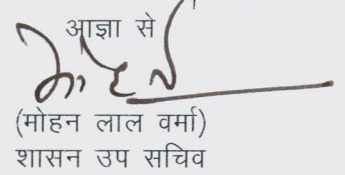 आज्ञा से
मोहन
(मोहन लाल वर्मा)
शासन उप सचिव